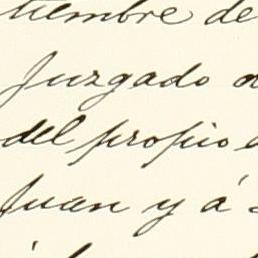 tiembre de
Juzgado
del propio
Juan y á